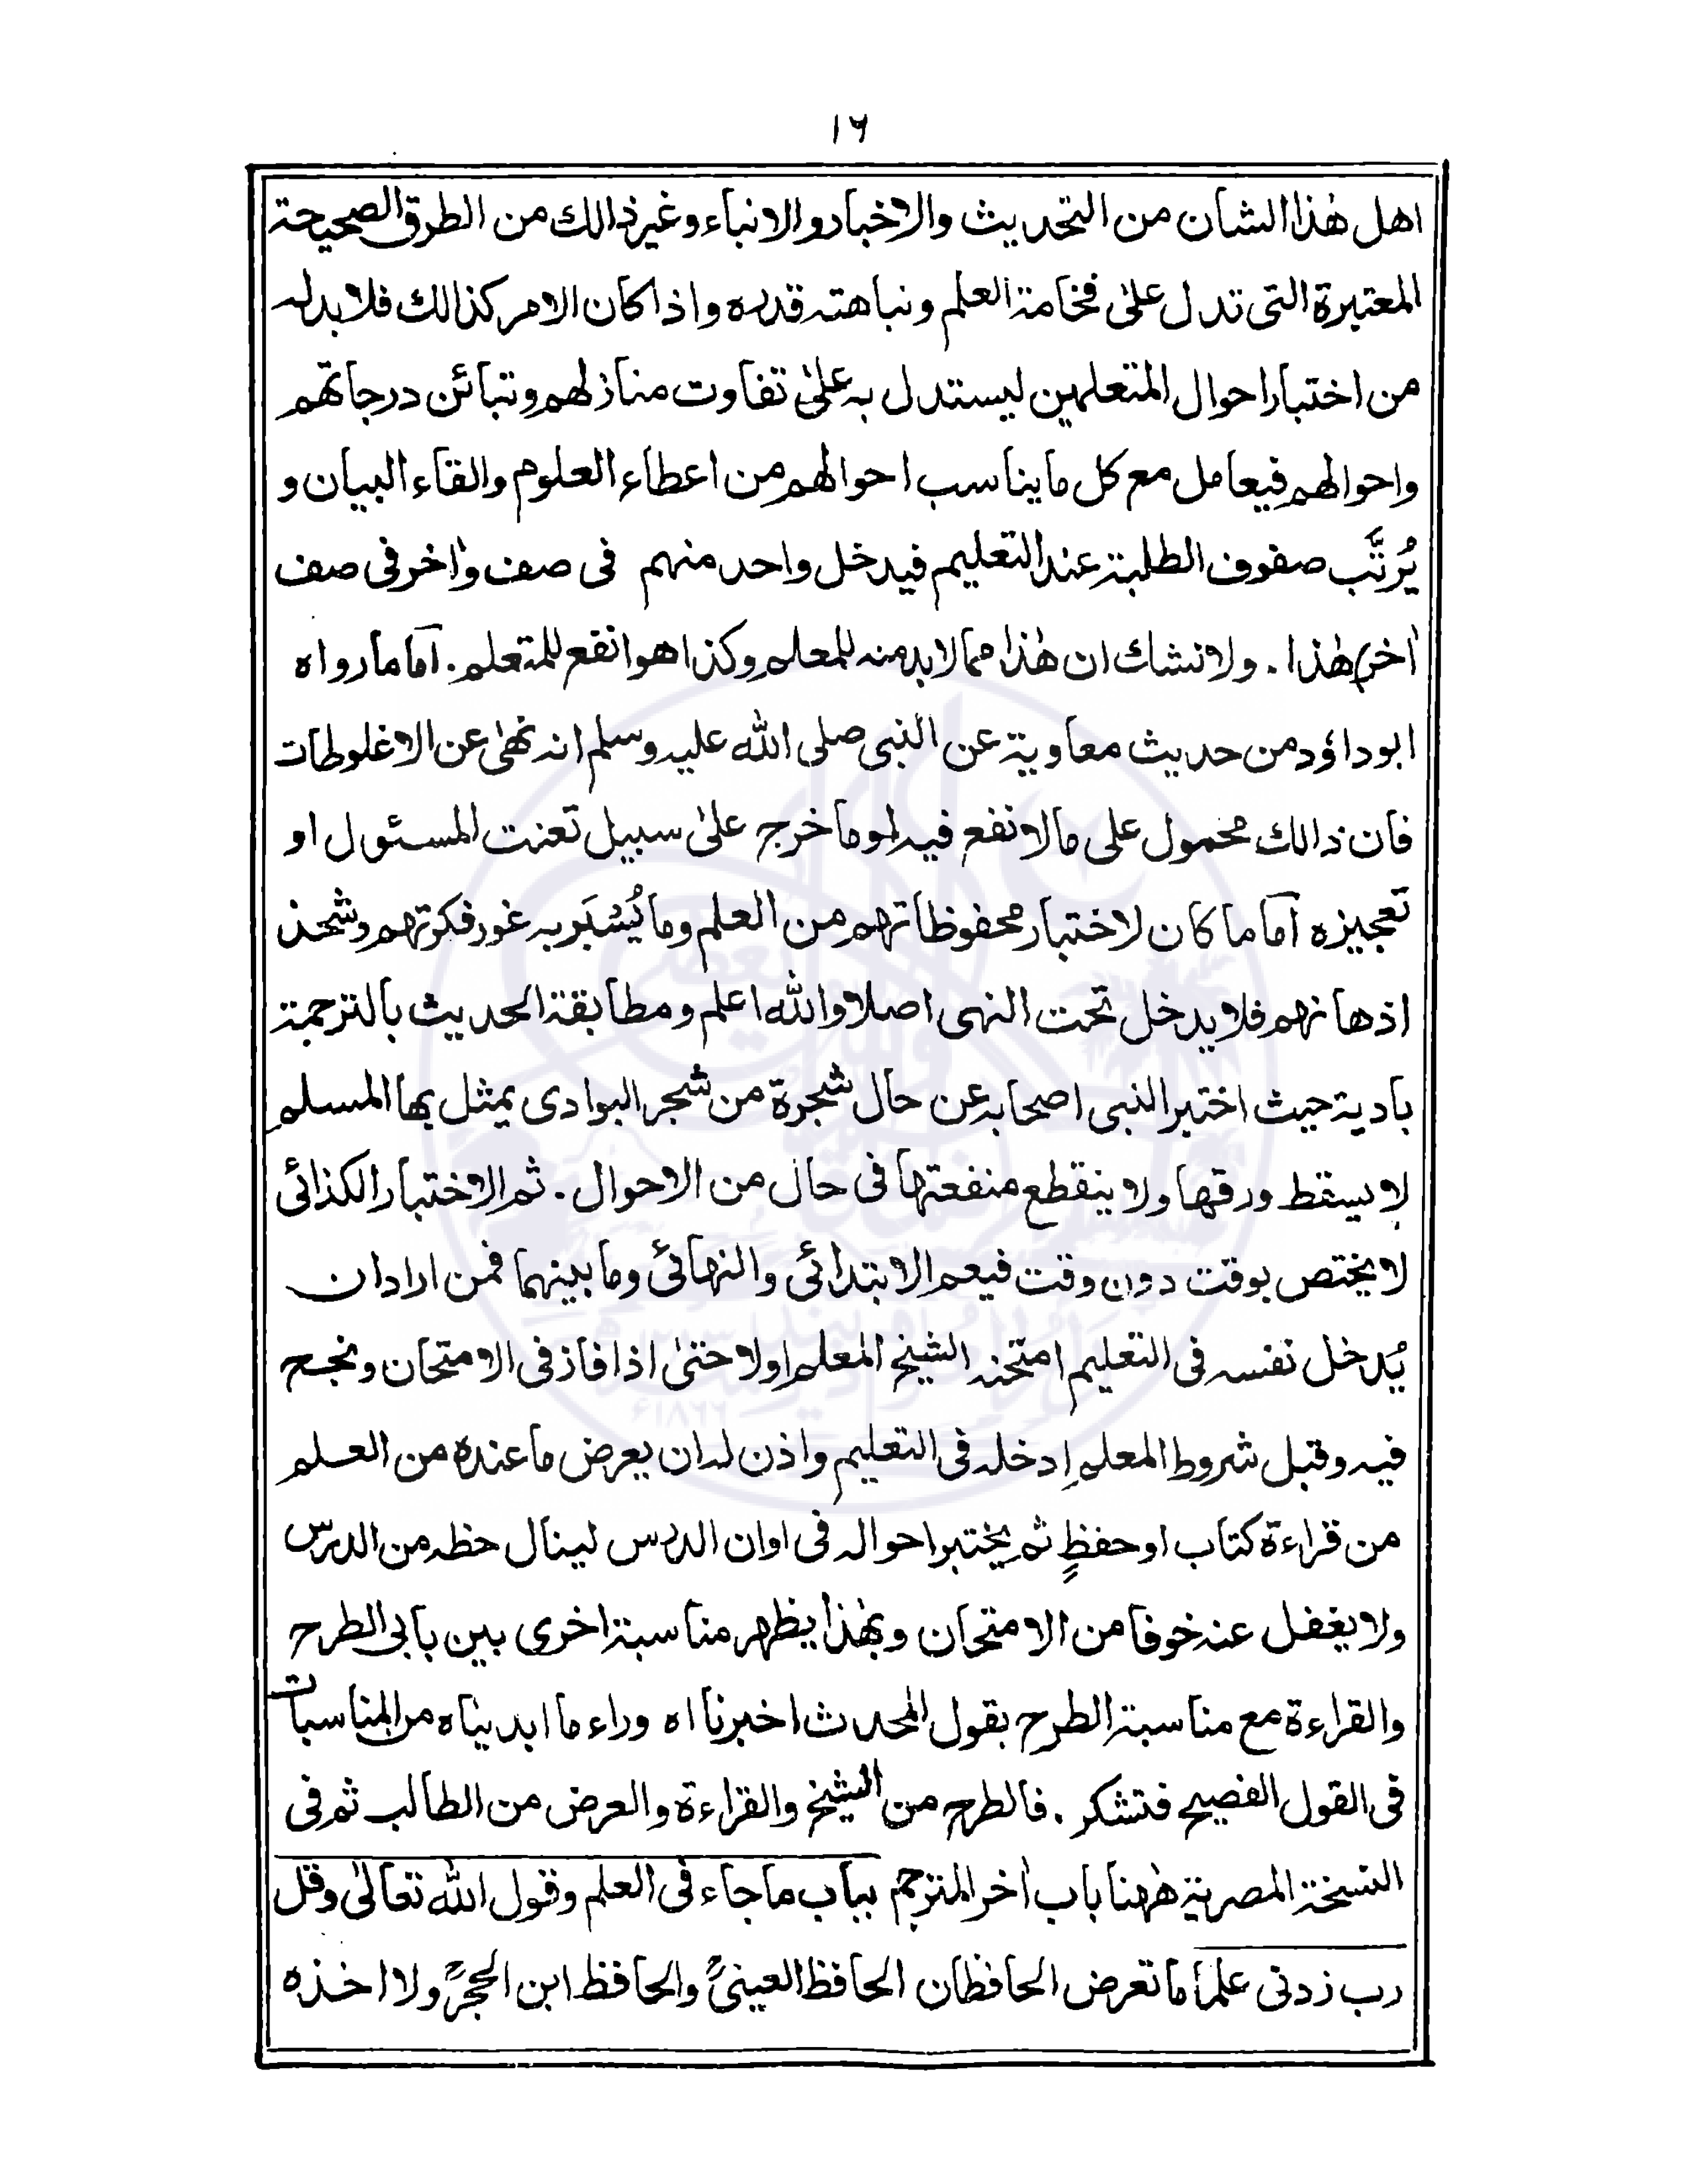 ١٦
اهل هٰذا الشان من التحديث والاخبار والانباء وغير ذالك من الطرق الصحيحة
المعتبرة التى تدل علىٰ فخامة العلم ونباهته قدره واذا كان الامر كذالك فلا بد له
من اختبار احوال المتعلمين ليستدل به علىٰ تفاوت منازلهم وتبائن درجاتهم
واحوالهم فيعامل مع كل ما يناسب احوالهم من اعطاء العلوم والقاء البيان و
يُرتَّب صفوف الطلبة عند التعليم فيدخل واحد منهم فى صف واٰخر فى صف
اٰخر هٰذا. ولا نشاك ان هٰذا مما لا بد منه للمعلم وكذا هو انفع للمتعلم. اما ما رواه
ابو داؤد من حديث معاوية عن النبى صلى الله عليه وسلم انه نهىٰ عن الاغلوطات
فان ذالك محمول على ما لا نفع فيه او ما خرج علىٰ سبيل تعنت المسئول او
تعجيزه اما ما كان لاختبار محفوظاتهم من العلم وما يُسْبَر به غور فكرتهم وشحذ
اذهانهم فلا يدخل تحت النهى اصلا والله اعلم ومطابقة الحديث بالترجمة
بادية حيث اختبر النبى اصحابه عن حال شجرة من شجر البوادى يمثل بها المسلم
لا يسقط ورقها ولا ينقطع منفعتها فى حال من الاحوال. ثم الاختبار الكذائى
لا يختص بوقت دون وقت فيعم الابتدائى والنهائى وما بينهما فمن اراد ان
يُدخل نفسه فى التعليم امتحنه الشيخ المعلم اولا حتىٰ اذا فاز فى الامتحان ونجح
فيه وقبل شروط المعلم ادخله فى التعليم واذن له ان يعرض ما عنده من العلم
من قراءة كتاب او حفظٍ ثم يختبر احواله فى اوان الدرس لينال حظه من الدرس
ولا يغفل عنه خوفا من الامتحان وبهٰذا يظهر مناسبة اخرى بين بابى الطرح
والقراءة مع مناسبة الطرح بقول المحدث اخبرنا اه وراء ما ابديناه من المناسبات
فى القول الفصيح فتشكر. فالطرح من الشيخ والقراءة والعرض من الطالب ثم فى
النسخة المصرية هٰهنا باب اٰخر المترجم بباب ما جاء فى العلم وقول الله تعالىٰ وقل
رب زدنى علما ما تعرض الحافظان الحافظ العينىؒ والحافظ ابن الحجرؒ ولا اخذه